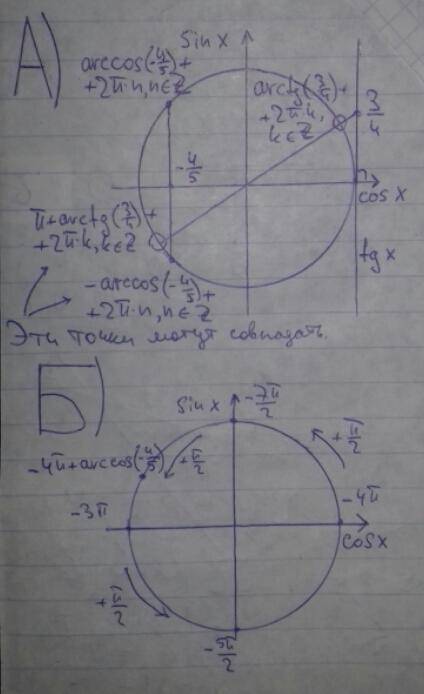 А)
sin x
arccos(-4/5)+
+2π·n, n∈Z
arctg(3/4)+
+2π·k,
k∈Z
3/4
-4/5
cos x
π+arctg(3/4)+
+2π·k, k∈Z
tg x
-arccos(-4/5)+
+2π·n, n∈Z
Эти точки могут совпадать.
Б)
sin x
-7π/2
+π/2
-4π+arccos(-4/5)
+π/2
-3π
-4π
cos x
+π/2
-5π/2